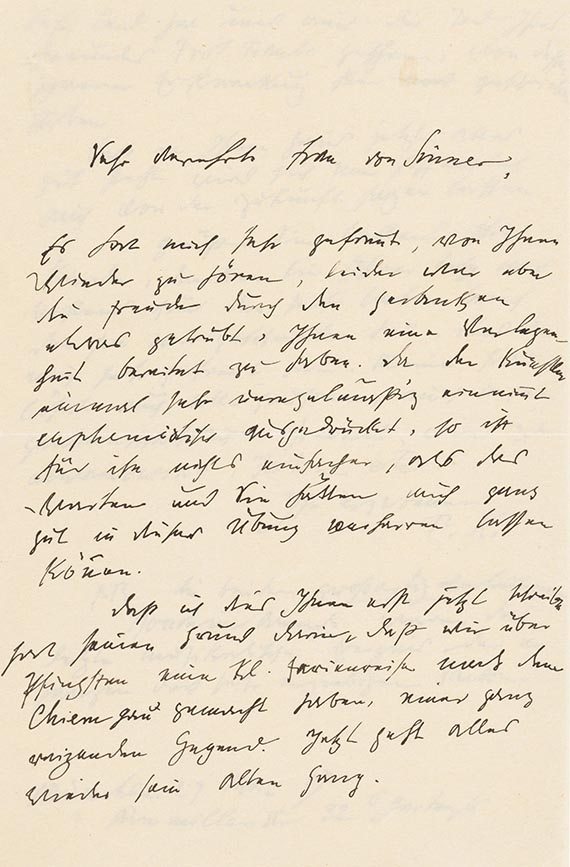 Sehr verehrte Frau von Sinner,
Es hat mich sehr gefreut, von Ihnen
wieder zu hören, leider war aber
die Freude durch den Gedanken
etwas getrübt, Ihnen eine Verlegen-
heit bereitet zu haben. Da der Künstler
einmal sehr unregelmässig einnimmt
euphemistisch ausgedrückt, so ist
für ihn nichts einfacher, als das
Warten und Sie hätten mich ganz
gut in dieser Übung verharren lassen
können.
Daß ich das Ihnen erst jetzt schreibe
hat seinen Grund darin, daß wir über
Pfingsten eine kl. Ferienreise nach dem
Chiemgau gemacht haben, einer ganz
reizenden Gegend. Jetzt geht alles
wieder sein alten Gang.